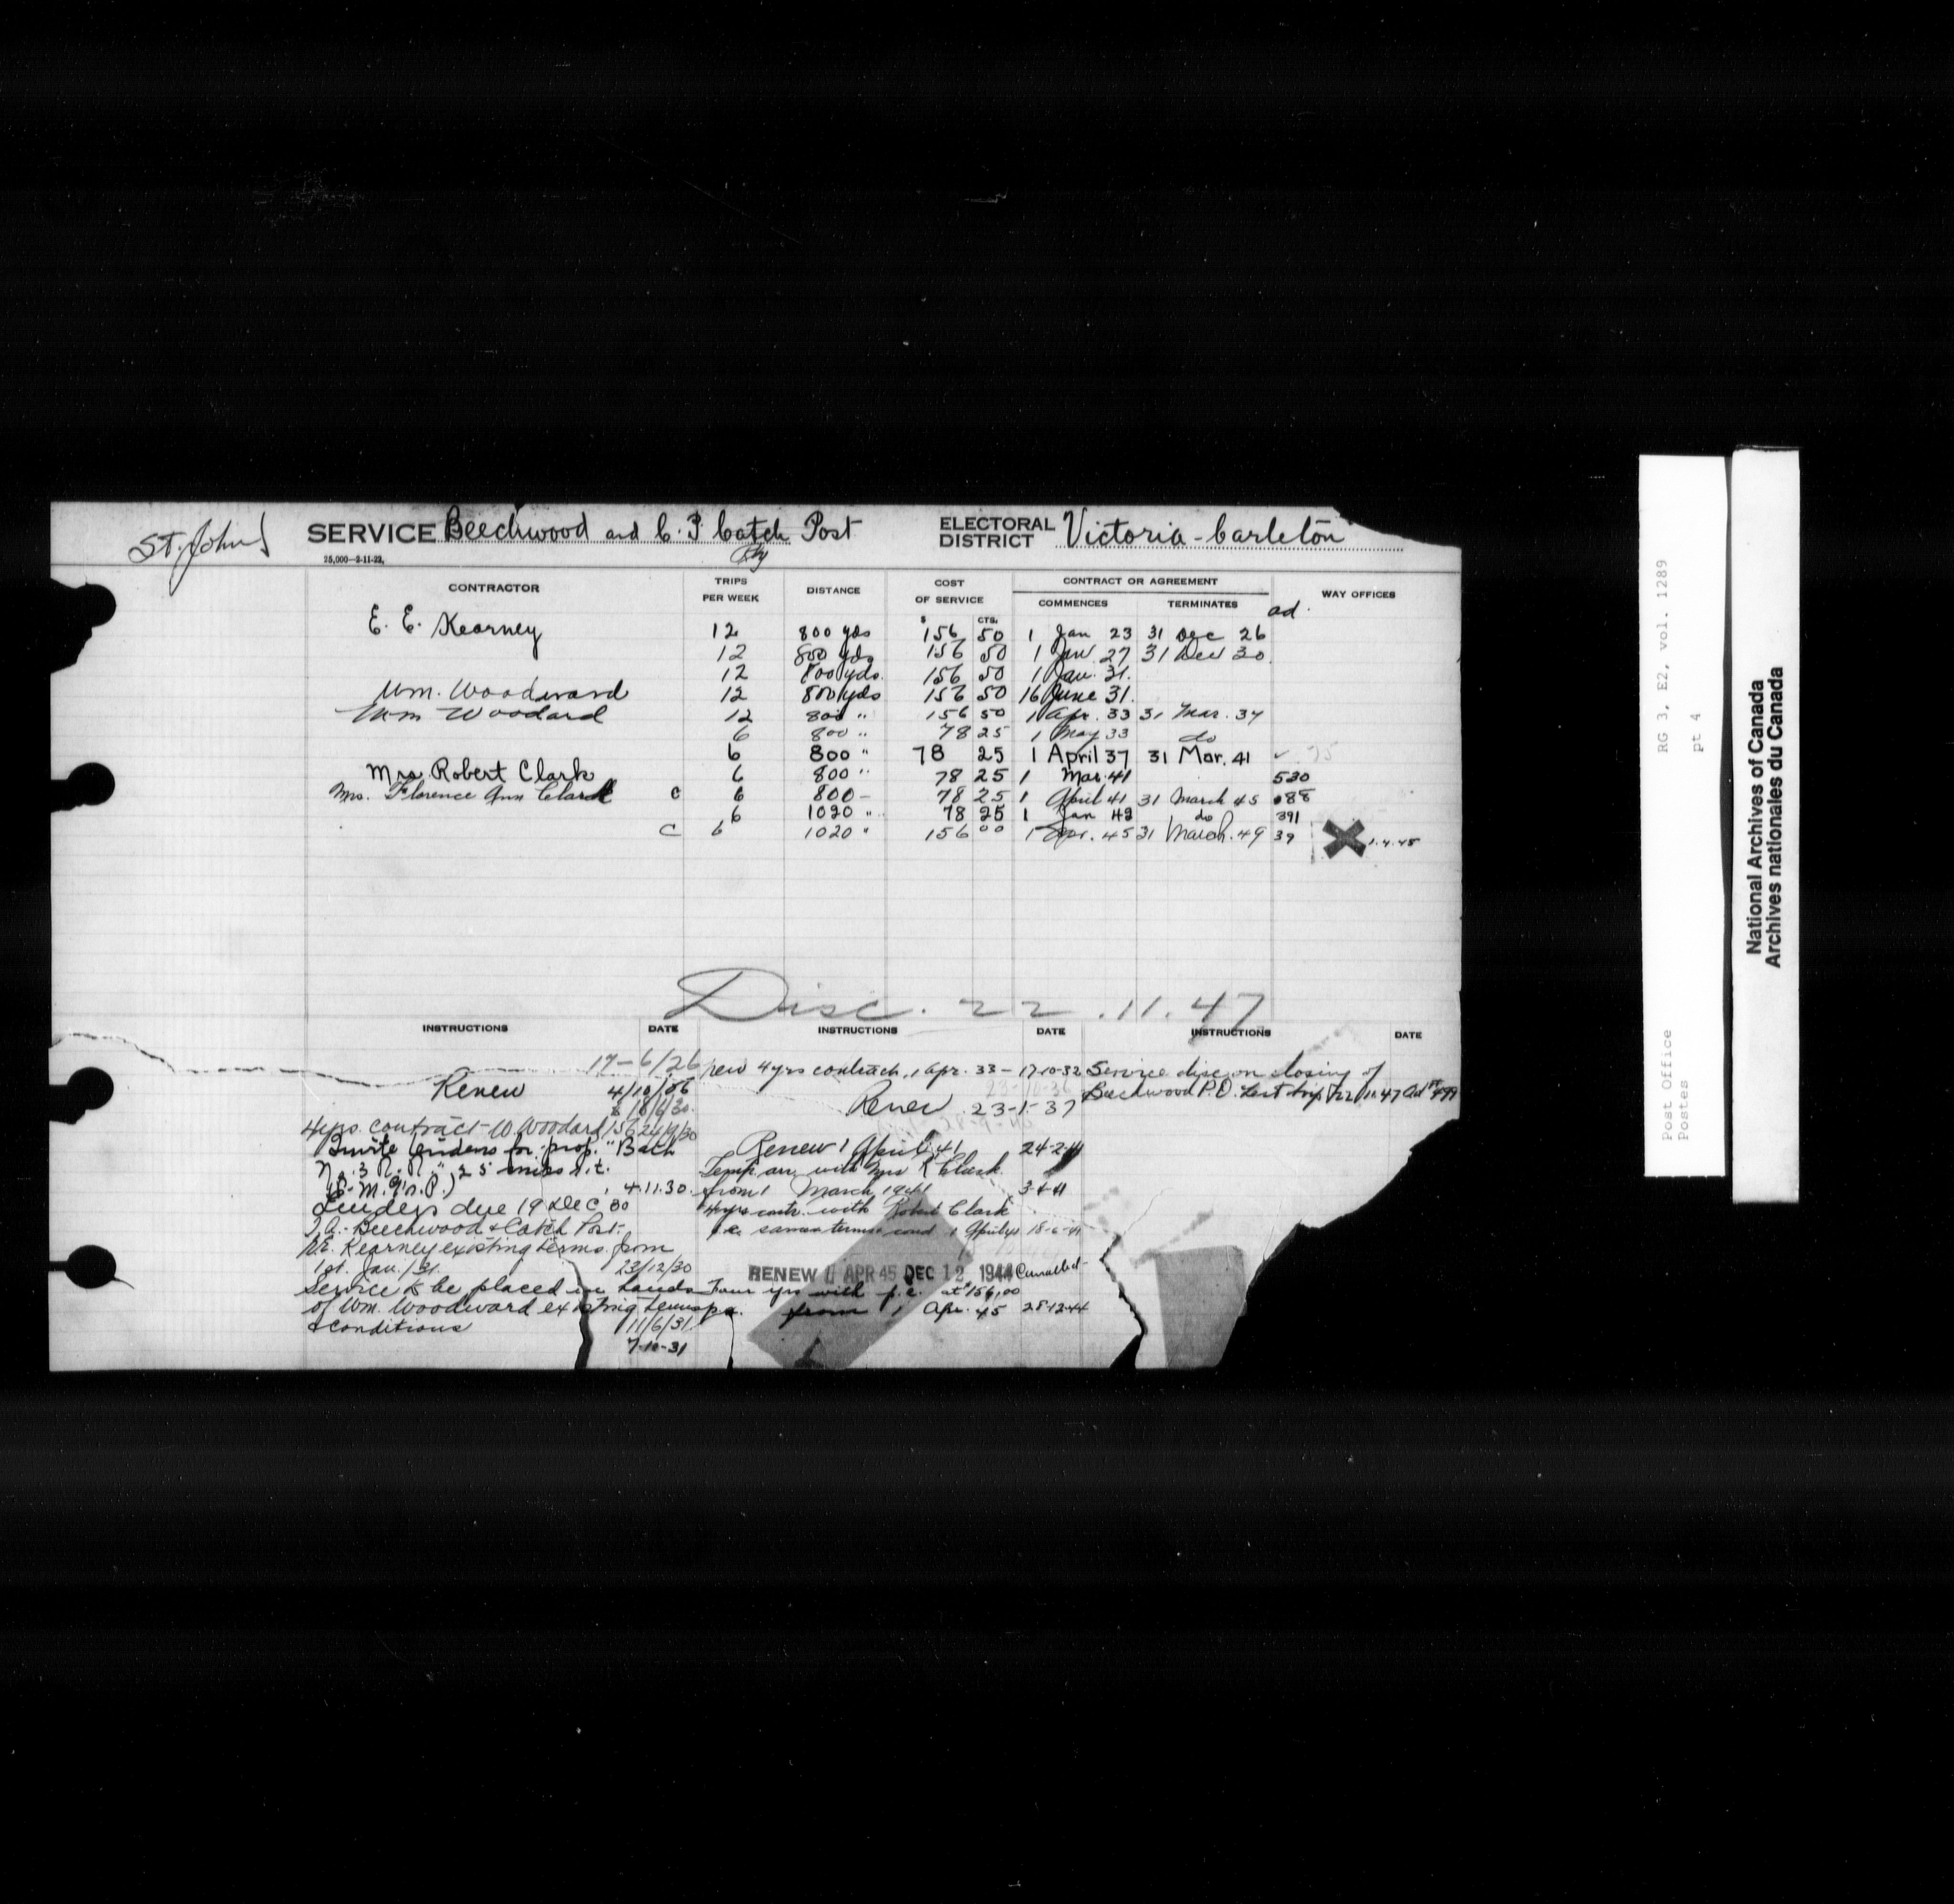 St. John
SERVICE Beechwood and C. P. Catch Post
Rly
ELECTORAL DISTRICT Victoria-Carleton
25,000—2-11-22.
CONTRACTOR TRIPS PER WEEK DISTANCE COST OF SERVICE CONTRACT OR AGREEMENT WAY OFFICES
$ CTS. COMMENCES TERMINATES ad.
E. E. Kearney 12 800 yds 156 50 1 Jan 23 31 Dec 26
12 800 yds 156 50 1 Jan 27 31 Dec 30
12 800 yds. 156 50 1 Jan. 31.
Wm. Woodward 12 800 yds 156 50 16 June 31.
Wm Woodard 12 800 " 156 50 1 Apr. 33 31 Mar. 37
6 800 " 78 25 1 May 33 do
6 800 " 78 25 1 April 37 31 Mar. 41
Mrs. Robert Clark 6 800 " 78 25 1 Mar. 41 530
Mrs. Florence Ann Clark c 6 800 – 78 25 1 April 41 31 March 45 88
6 1020 " 78 25 1 Jan 42 do 391
c 6 1020 " 156 00 1 Apr. 45 31 March. 49 39 1.4.45
Disc. 22.11.47
INSTRUCTIONS DATE INSTRUCTIONS DATE INSTRUCTIONS DATE
17-6/26
Renew 4/10/26
18/6/30
4 yrs. contract - W. Woodard 156
Invite tenders for prop. "Bath
No. 3 R. R." 25 miles r.t.
4.11.30.
Tenders due 19 Dec 30
T.A. Beechwood & Catch Post.
Kearney existing terms from
1st. Jan./31. 23/12/30
Service to be placed in hands
of Wm. Woodward existing terms
& conditions 11/6/31
7-10-31
new 4 yrs contract, 1 Apr. 33 – 17-10-32
Renew 23-1-37
Renew 1 April 41 24-2-41
Temp arr. with Mrs R Clark
from 1 March 1941 3-4-41
4 yrs contr. with Robert Clark
same terms cond 1 April 41 18-6-41
RENEW 1 APR 45 DEC 12 1944 Cancelled
Four yrs with p.c. at $156.00
p.a. from 1 Apr. 45 28-12-44
Service disc. on closing of
Beechwood P.O. Last trip 22/11.47
RG 3, E2, vol. 1289
pt 4
Post Office
Postes
National Archives of Canada
Archives nationales du Canada